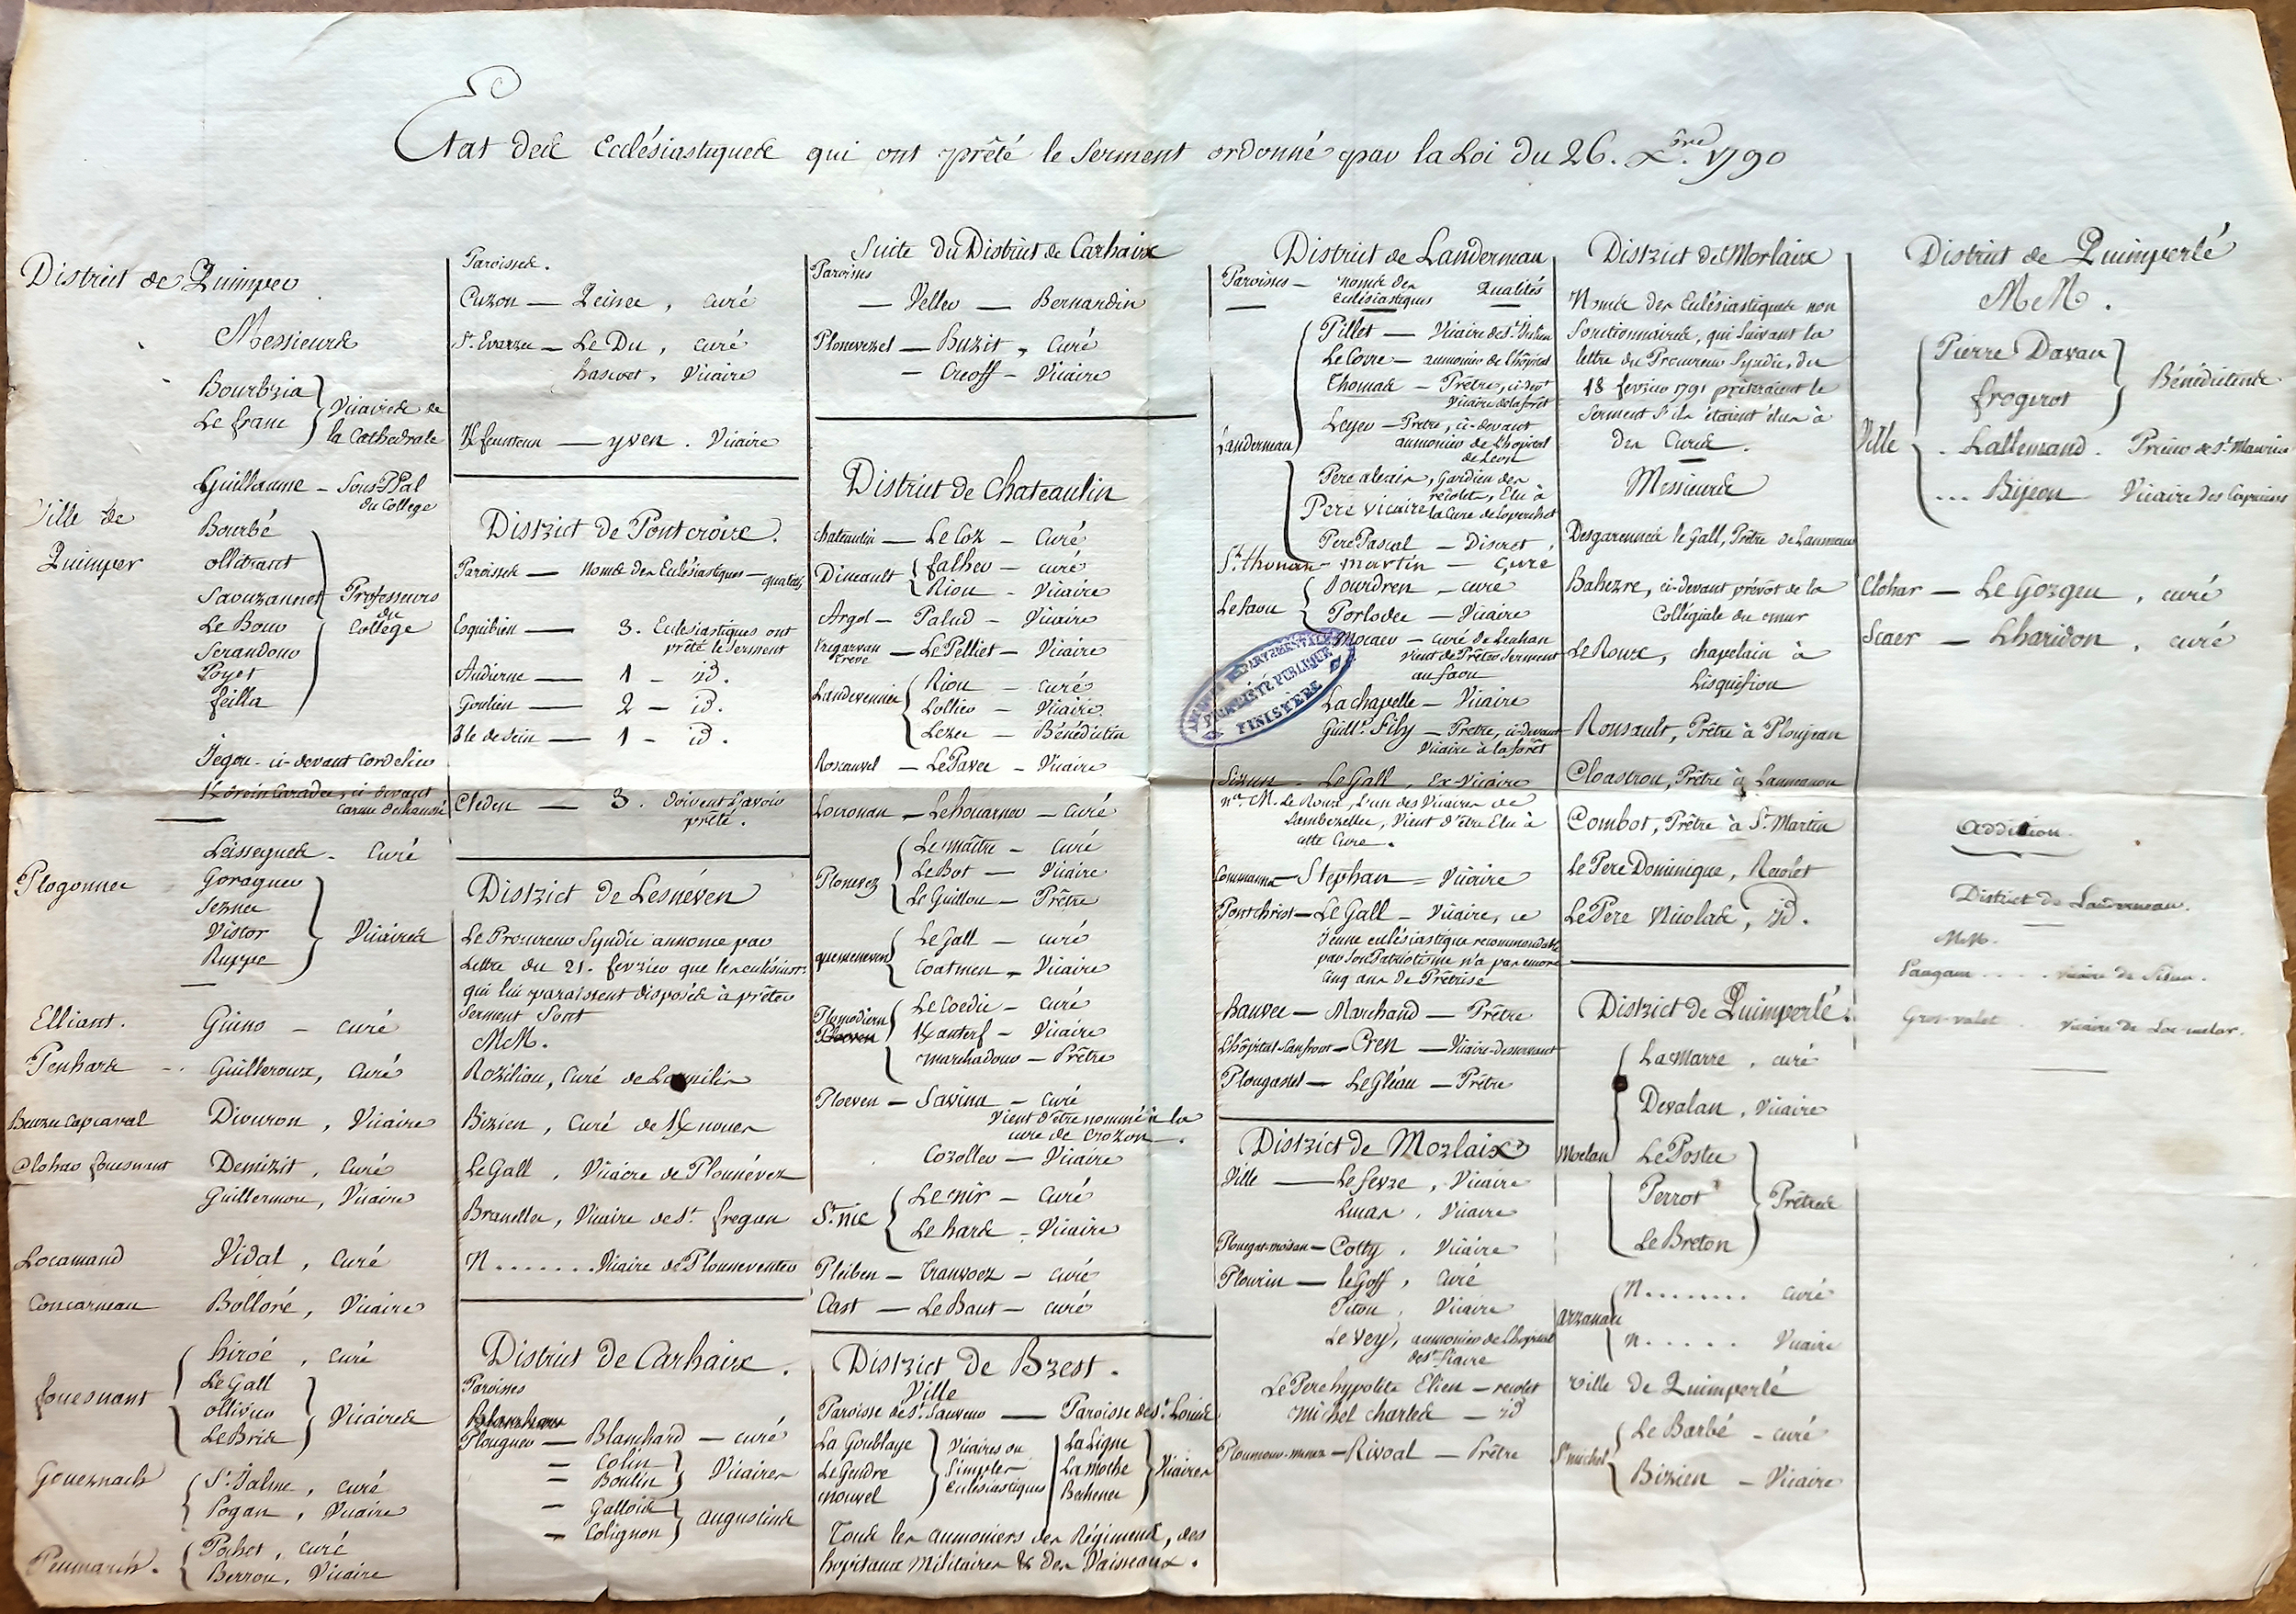 Etat des Ecclésiastiques qui ont prêté le Serment ordonné par la Loi du 26. Xbre. 1790
District de Quimper
Messieurs
Bourbria
Le franc
Vicaires de
la Cathedrale
Ville de
Quimper
Guillaume - Sous-PPal
du College
Bourbé
ollitrant
Savuzannet
Le Bour
Serandour
Poyet
feilla
Professeurs
du
College
Jegou - ci-devant Cordelier
ci-devant
Carme dechaussé
Plogonnec
Leisseguer - Curé
Goraguer
Seznec
Vistor
Ruppe
Vicaires
Elliant. Guino - curé
Penhars - Guilleroux, Curé
Beuzec capcaval Divuron, Vicaire
Clohar fouesnant Demizit, Curé
Guillermou, Vicaire
Locamand Vidal, Curé
Concarneau Bolloré, Vicaire
fouesnant
hiroé, curé
Le Gall
ollivier
Le Bris
Vicaires
Gouesnach
St. Jalme, curé
Pogan, Vicaire
Penmarch.
Pochet, curé
Berrou, Vicaire
Paroisses.
Cuzon - Quinec, curé
St. Evarzec - Le Du, curé
hascoet, Vicaire
Kfeunteun - yven. Vicaire
District de Pontcroix.
Paroisses - Noms des Eclésiastiques - qualités
Esquibien - 3. Eclesiastiques ont
prêté le Serment
Audierne - 1 - id.
Goulien - 2 - id.
Ile de Sein - 1 - id.
Cleden - 3. doivent l'avoir
prêté.
District de Lesneven
Le Procureur Syndic annonce par
Lettre du 21. fevrier que les eclésiast.
qui lui paraissent disposés à prêter
Serment Sont
MM.
Roziliou, Curé de
Bizien, Curé de Knoues
Le Gall, Vicaire de Plounévez
Branellec, Vicaire de St. fregan
N....... Vicaire de Plouneventer
District de Carhaix.
Paroisses
Plouguer - Blanchard - curé
= Colin
= Boulin
Vicaires
- Gallois
- Colignon
augustins
Suite du District de Carhaix
Paroisses
- Veller - Bernardin
Plonevezel - Buzit, Curé
- Creoff - Vicaire
District de Chateaulin
Chateaulin - Le Coz - Curé
Dineault
falher - curé
Riou - Vicaire
Argol - Palud - Vicaire
Tregarvan
treve
- Le Pelliet - Vicaire
Landevennec
Riou - curé
Lollier - Vicaire
Lezec - Bénédictin
Roscanvel - Le Pavec - Vicaire
Locronan - Lehouarner - Curé
Plonevez
Le maître - Curé
Le Bot - Vicaire
Le Guillou - Prêtre
quemeneven
Le Gall - curé
Coatmen - Vicaire
Plomodiern
Ploeven
Le Coedic - curé
Kauterf - Vicaire
marchadour - Prêtre
Ploeven - Savina - curé
vient d'être nommé à la
cure de Crozon.
Corollec - Vicaire
St. nic
Le mir - Curé
Le hars - Vicaire
Pleiben - Tranvoez - curé
Cast - Le Baut - curé
District de Brest.
Ville
Paroisse de St. Sauveur - Paroisse de St. Louis
La Goublaye
Le Guidre
nouvel
Vicaires ou
Simples
eclésiastiques
La Ligne
La moche
Bechenec
Vicaires
Tous les aumoniers des Régiments, des
hopitaux Militaires & des Vaisseaux.
District de Landerneau
Paroisses - noms des
eclésiastiques
Qualités
Landerneau
Pillet - Vicaire de St. Julien
Le Covre - aumonier de l'hôpital
Thomas - Prêtre, ci-devt
Vicaire de la forêt
Leyer - Prêtre, ci-devant
aumonier de l'hopital
de Léon
Pere alexis, Gardien des
recolets, Elu à
Pere Vicaire la Cure de Loperhet
Pere Pascal - Discret
St. thonan - martin - curé
Le faou
Dourdren - curé
Porlodec - Vicaire
Mocaer - curé de Leuhan
vient de Prêter Serment
au faou
La chapelle - Vicaire
Guille. Fily - Prêtre, ci-devant
Vicaire à la forêt
ARCHIVES DEPARTEMENTALES
PROPRIÉTÉ PUBLIQUE
FINISTÈRE
Sizun - Le Gall, Ex-Vicaire
na. M. Le Roux, l'un des Vicaires de
Lambezellec, Vient d'être Elu à
cette Cure.
Commanna - Stephan - Vicaire
Pontchrist - Le Gall - Vicaire, ce
jeune eclésiastique recommandable
par son Patriotisme n'a pas encore
Cinq ans de Prêtrise
hanvec - Marchand - Prêtre
L'hôpital-Camfrout - Cren - Vicaire-desservant
Plougastel - Le Gléau - Prêtre
District de Morlaix
Ville - Le fevre, Vicaire
Lucas, Vicaire
Plouegat-moisan - Cotty, Vicaire
Plourin - le Goff, Curé
Piton, Vicaire
Le Vey, aumonier de l'hopital
de St. fiacre
Le Pere hypolite Elien - recolet
michel charles - id
Ploumour-menez - Rivoal - Prêtre
District de Morlaix
Noms des Eclésiastiques non
fonctionnaires, qui suivant la
lettre du Procureur Syndic, du
18 fevrier 1791 prêteraient le
Serment S'ils étaient élus à
des Cures.
Messieurs
Desgarennes le Gall, Prêtre de Lanmeur
Bahezre, ci-devant prévot de la
Collégiale du mur
Le Roux, chapelain à
Lisquifiou
Rousault, Prêtre à Ploujean
Cloastrou, Prêtre à Lannoanou
Combot, Prêtre à St. Martin
Le Pere Dominique, Recolet
Le Pere Nicolas, id.
District de Quimperlé.
Moelan
La Marre, curé
Devalan, Vicaire
Le Postec
Perrot
Le Breton
Prêtres
arzanau
N........ curé
n..... Vicaire
ville de Quimperlé
St. michel
Le Barbé - curé
Bizien - Vicaire
District de Quimperlé
MM.
Ville
Pierre Davau
frogerot
Bénédictins
Lallemand. Prieur de St. Maurice
... Bijeon Vicaire des Capucins
Clohar - Le Gorgeu, curé
Scaer - Lharidon, curé
Addition.
District de Landerneau.
MM.
Pangam .... vicaire de Sizun.
Gros-valet .. vicaire de Loc-melar.